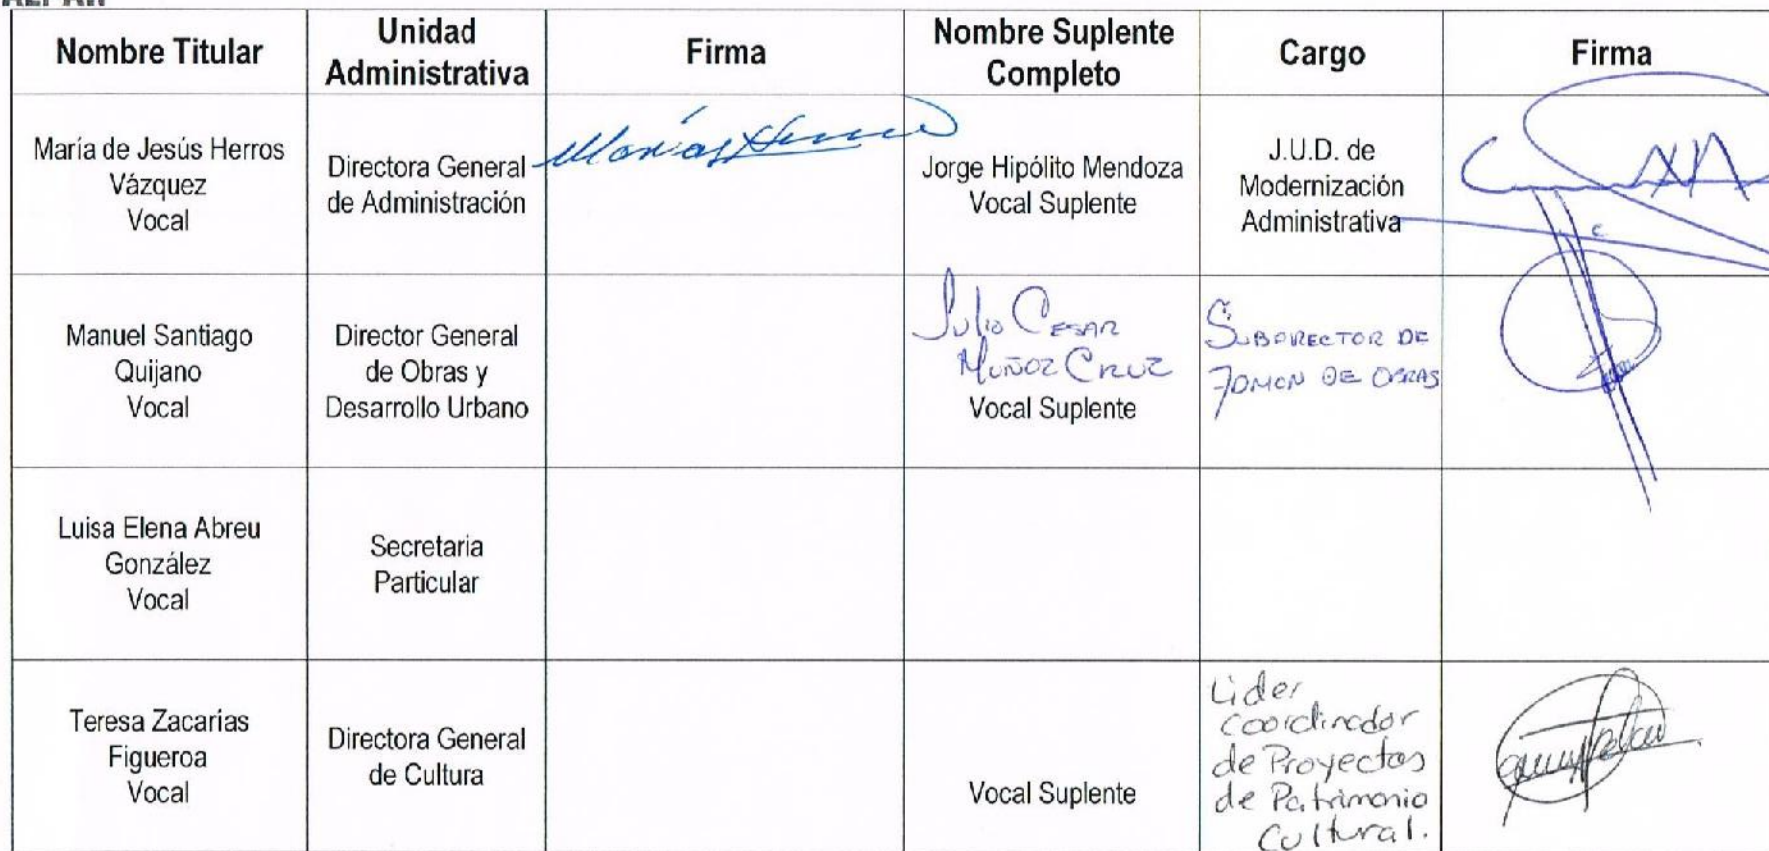 Nombre Titular
Unidad
Administrativa
Firma
Nombre Suplente
Completo
Cargo
Firma
María de Jesús Herros
Vázquez
Vocal
Directora General
de Administración
Jorge Hipólito Mendoza
Vocal Suplente
J.U.D. de
Modernización
Administrativa
Manuel Santiago
Quijano
Vocal
Director General
de Obras y
Desarrollo Urbano
Julio CESAR
MUÑOZ CRUZ
Vocal Suplente
DE
DE OBRAS
Luisa Elena Abreu
González
Vocal
Secretaria
Particular
Teresa Zacarías
Figueroa
Vocal
Directora General
de Cultura
Vocal Suplente
Lider
coordinador
de Proyectos
de Patrimonio
Cultural.